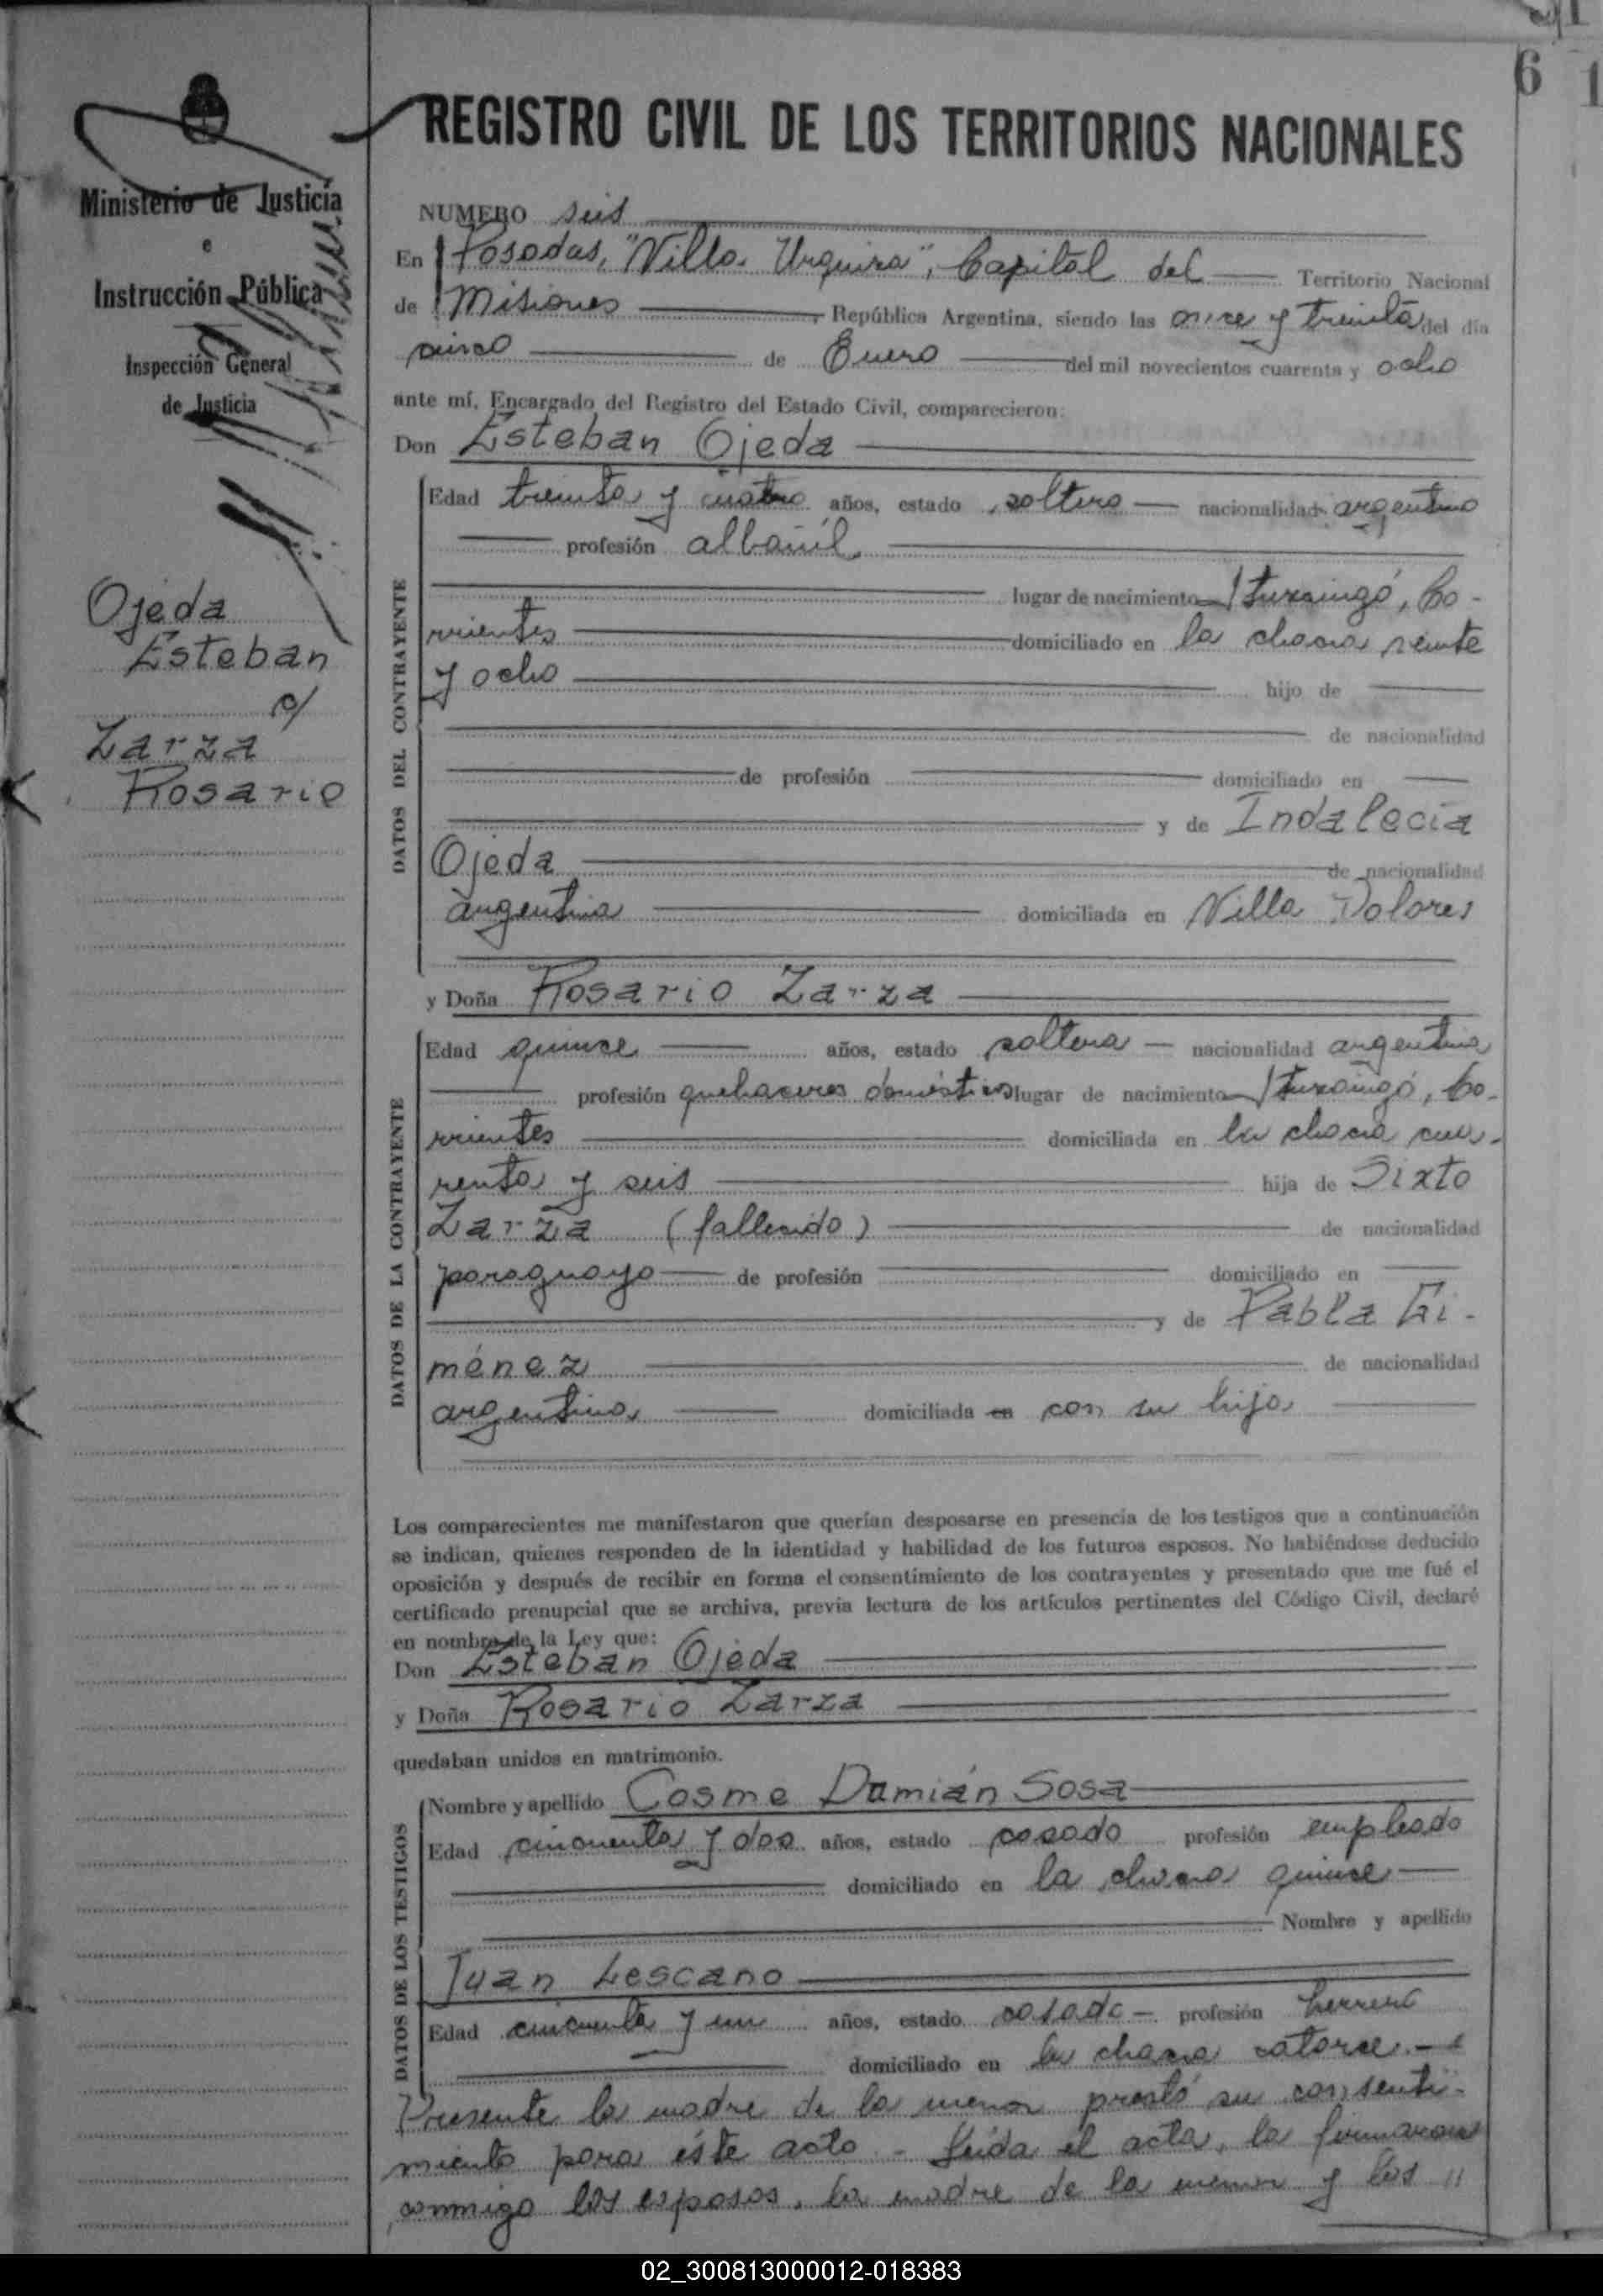 51
6 1
REGISTRO CIVIL DE LOS TERRITORIOS NACIONALES
Ministerio de Justicia
e
Instrucción Pública
Inspección General
de Justicia
Ojeda
Esteban
c/
Zarza
Rosario
NUMERO seis
En Posadas, "Villa Urquiza", Capital del Territorio Nacional
de Misiones, República Argentina, siendo las once y treinta del día
cinco de Enero del mil novecientos cuarenta y ocho
ante mí, Encargado del Registro del Estado Civil, comparecieron:
Don Esteban Ojeda
DATOS DEL CONTRAYENTE
Edad treinta y cuatro años, estado soltero nacionalidad argentino
profesión albañil
lugar de nacimiento Ituzaingó, Co-
rrientes domiciliado en la chacra veinte
y ocho hijo de
de nacionalidad
de profesión domiciliado en
y de Indalecia
Ojeda de nacionalidad
argentina domiciliada en Villa Dolores
y Doña Rosario Zarza
DATOS DE LA CONTRAYENTE
Edad quince años, estado soltera nacionalidad argentina
profesión quehaceres domésticos lugar de nacimiento Ituzaingó, Co-
rrientes domiciliada en la chacra cua-
renta y seis hija de Sixto
Zarza (fallecido) de nacionalidad
paraguayo de profesión domiciliado en
y de Pabla Gi-
ménez de nacionalidad
argentina domiciliada en con su hija
Los comparecientes me manifestaron que querían desposarse en presencia de los testigos que a continuación
se indican, quienes responden de la identidad y habilidad de los futuros esposos. No habiéndose deducido
oposición y después de recibir en forma el consentimiento de los contrayentes y presentado que me fué el
certificado prenupcial que se archiva, previa lectura de los artículos pertinentes del Código Civil, declaré
en nombre de la Ley que:
Don Esteban Ojeda
y Doña Rosario Zarza
quedaban unidos en matrimonio.
DATOS DE LOS TESTIGOS
Nombre y apellido Cosme Damián Sosa
Edad cincuenta y dos años, estado casado profesión empleado
domiciliado en la chacra quince
Nombre y apellido
Juan Lescano
Edad cincuenta y un años, estado casado profesión herrero
domiciliado en la chacra catorce.-
Presente la madre de la menor prestó su consenti-
miento para éste acto - Leída el acta, la firmaron
conmigo los esposos, la madre de la menor y los "
02_300813000012-018383